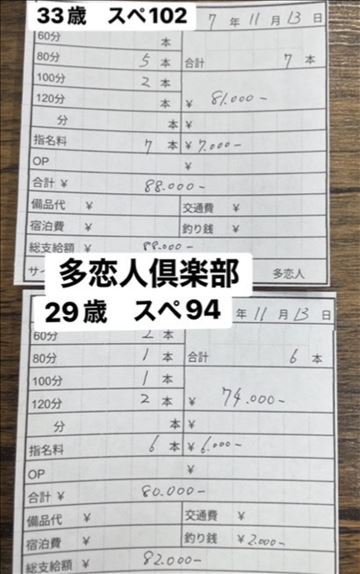 33歳 スペ102
7 年 11 月 13 日
60分 本
80分 5 本 合計 7 本
100分 2 本
120分 本 ¥ 81.000-
分 本 ¥
指名料 7 本 ¥ 7.000-
OP ¥
合計 ¥ 88.000-
備品代 ¥ 交通費 ¥
宿泊費 ¥ 釣り銭 ¥
総支給額 ¥ 88.000-
多恋人
多恋人倶楽部
29歳 スペ94
年 11 月 13 日
60分 2 本
80分 1 本 合計 6 本
100分 1 本
120分 2 本 ¥ 74.000-
分 本 ¥
指名料 6 本 ¥ 6.000-
OP ¥
合計 ¥ 80.000-
備品代 ¥ 交通費 ¥
宿泊費 ¥ 釣り銭 ¥ 2.000-
総支給額 ¥ 82.000-